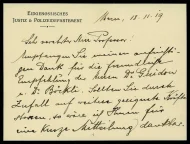 EIDGENÖSSISCHES
JUSTIZ & POLIZEIDEPARTEMENT
Bern, 18 11 19
Sehr verehrter Herr Professor,
Empfangen Sie meinen aufrichti-
gen Dank für die freundliche
Empfehlung der Herren Dr. Guidon
u. Dr. Bürkli. Sollten Sie durch
Zufall auf weitere geeignete Kräfte
stossen, so wäre ich Ihnen für
eine kurze Mitteilung dankbar.